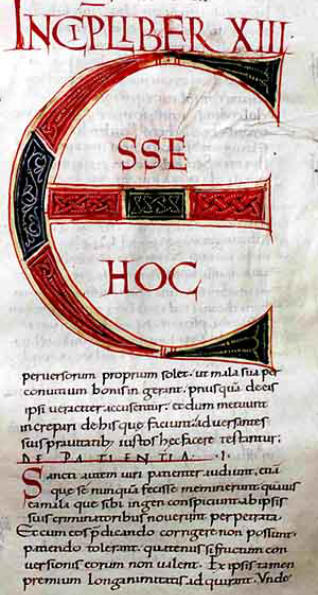 INCPLLBER XIII
ESSE
HOC
perversorum proprium solet. ut mala sua per
convitium bonis in gerant. priusquā de eis
ipsi veraciter accusentur. et dum metuunt
increpari de his que faciunt. adversantes
suis pravitatib; iustos hec facere testantur.
DE PATIENTIA. I.
Sancti autem viri patienter audiunt, etiā
que se nunquā fecisse meminerunt. quāvis
eamala que sibi ingeri conspiciunt. ab ipsis
suis criminatoribus noverint perpetrata.
Et cum eos p̄dicando corrigere non possunt.
patiendo tolerant. quatenus si fructum con
versionis eorum non valent. Ex ipsis tamen
premium longanimitatis adquirant. Unde